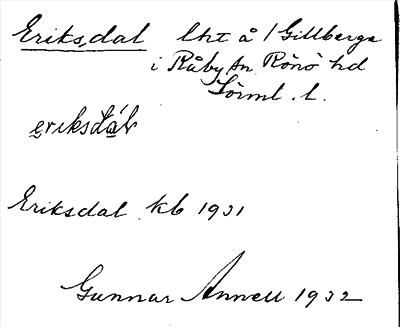 Eriksdal lht å / Gillberga
i Råby sn Rönö hd
Sörml. l.
eriksdál
Eriksdal kb 1931
Gunnar Annell 1932